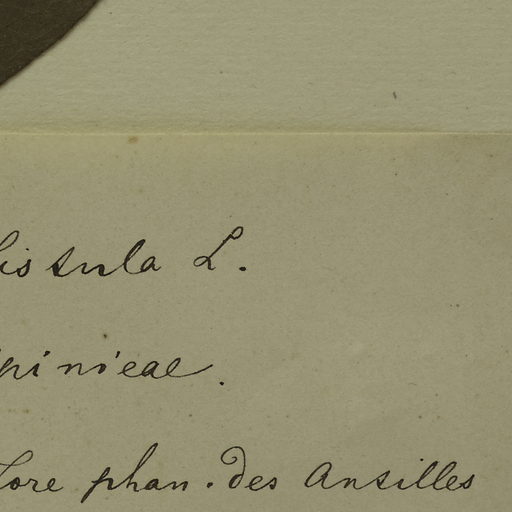 fistula L.
pinieae.
Flore phan. des Antilles